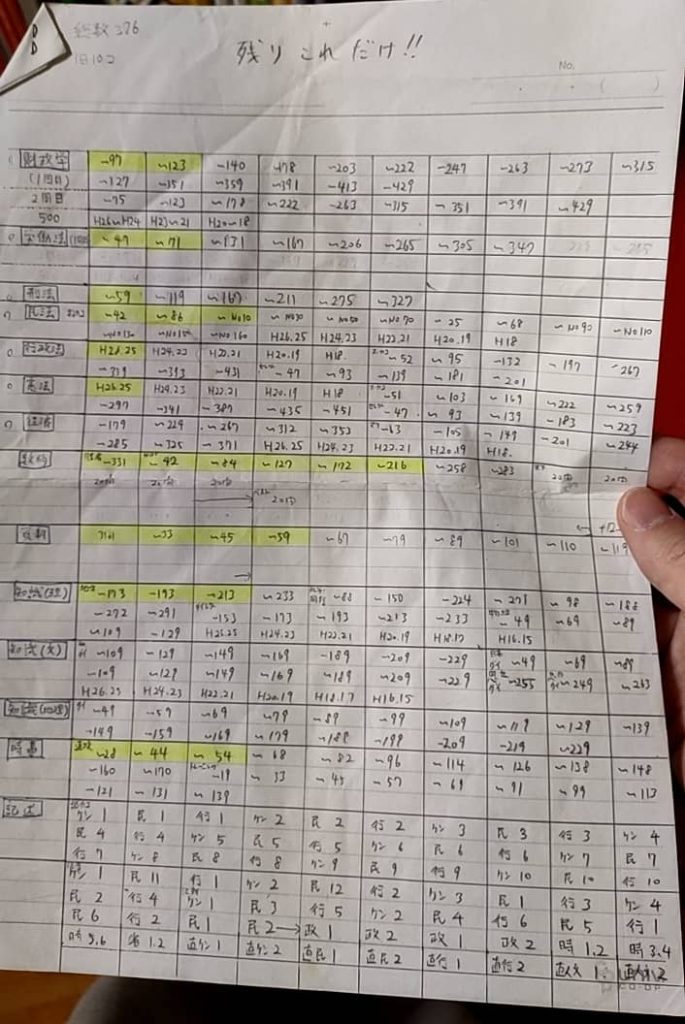 総数 376
残りこれだけ!!
1日10.2
No.
財政学 ~97 ~123 ~140 ~178 ~203 ~222 ~247 ~263 ~273 ~315
(1回目) ~127 ~151 ~359 ~391 ~413 ~429
2回目 ~75 ~123 ~178 ~222 ~263 ~315 ~351 ~391 ~429
500 H26~H24 H23~21 H20~18
労働法 ~47 ~71 ~131 ~167 ~206 ~265 ~305 ~347
刑法 ~59 ~119 ~167 ~211 ~275 ~327
民法 ~42 ~86 ~No10 ~No30 ~No50 ~No70 ~25 ~68 ~No90 ~No110
~No130 ~No150 ~No160 H26.25 H24.23 H22.21 H20.19 H18
行政法 H26.25 H24.23 H22.21 H20.19 H18. ~52 ~95 ~132 ~197 ~267
~319 ~393 ~431 ~47 ~93 ~139 ~181 ~201
憲法 H26.25 H24.23 H22.21 H20.19 H18 ~51 ~103 ~169 ~222 ~259
~297 ~341 ~387 ~435 ~451 ~47 ~93 ~139 ~183 ~223
経済 ~179 ~229 ~267 ~312 ~353 ~63 ~105 ~149 ~201 ~244
~285 ~325 ~371 H26.25 H24.23 H22.21 H20.19 H18.
数的 ~331 ~42 ~84 ~127 ~172 ~216 ~258 ~283
20問 20問 20問 20問 20問
20問
~33 ~45 ~59 ~67 ~79 ~89 ~101 ~110 ~119
知識(理) ~173 ~193 ~213 ~233 ~88 ~150 ~224 ~271 ~98 ~188
~272 ~291 ~153 ~173 ~193 ~213 ~233 ~49 ~69 ~89
~109 ~129 H26.25 H24.23 H22.21 H20.19 H18.17 H16.15
知識(文) ~109 ~129 ~149 ~169 ~189 ~209 ~229 ~49 ~69 ~89
~109 ~129 ~149 ~169 ~189 ~209 ~229 ~255 ~249 ~263
H26.25 H24.23 H22.21 H20.19 H18.17 H16.15
知識(地理) ~49 ~59 ~69 ~79 ~89 ~99 ~109 ~119 ~129 ~139
~149 ~159 ~169 ~179 ~188 ~198 ~209 ~219 ~229
時事 ~28 ~44 ~54 ~68 ~82 ~96 ~114 ~126 ~138 ~148
~160 ~170 ~19 ~33 ~45 ~57 ~69 ~91 ~99 ~113
~121 ~131 ~139
記述 ケン 1 民 1 行 1 ケン 2 民 2 行 2 ケン 3 民 3 行 3 ケン 4
民 4 行 4 ケン 5 民 5 行 5 ケン 6 民 6 行 6 ケン 7 民 7
行 7 ケン 8 民 8 行 8 ケン 9 民 9 行 9 ケン 10 民 10 行 10
ケン 1 民 11 行 1 ケン 2 民 12 行 2 ケン 3 民 1 行 3 ケン 4
民 2 行 4 ケン 1 民 3 行 5 ケン 2 民 4 行 6 民 5 行 1
民 6 行 2 民 1 民 2→政 1 政 2 政 1 政 2 時 1.2 時 3.4
時 5.6 1.2 直ケン 1 直ケン 2 直民 1 直民 2 直行 1 直行 2